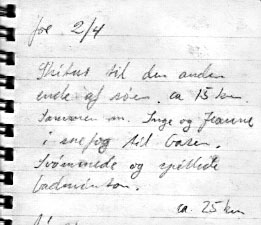 fre 2/4
Skitur til den anden
ende af søen. ca 15 km.
Sammen m. Inge og Jeanne
i snefog til Gasen.
Svømmede og spillede
badminton.
ca. 25 km